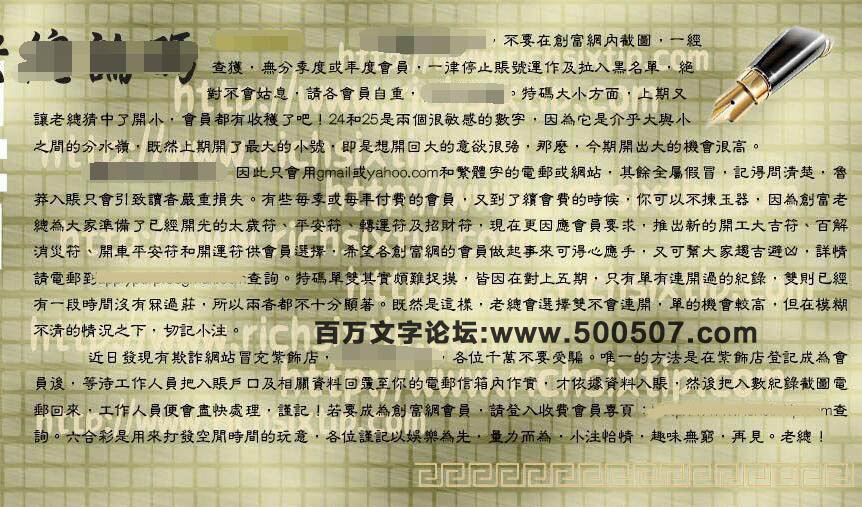 老總論碼
，不要在創富網內截圖，一經
查獲，無分季度或年度會員，一律停止賬號運作及拉入黑名單，絕
對不會姑息，請各會員自重，。特碼大小方面，上期又
讓老總猜中了開小，會員都有收穫了吧！24和25是兩個很敏感的數字，因為它是介乎大與小
之間的分水嶺，既然上期開了最大的小號，即是想開回大的意欲很強，那麼，今期開出大的機會很高。
因此只會用gmail或yahoo.com和繁體字的電郵或網站，其餘全屬假冒，記得問清楚，魯
莽入賬只會引致讀者嚴重損失。有些每季或每年付費的會員，又到了續會費的時候，你可以不揀玉器，因為創富老
總為大家準備了已經開光的太歲符、平安符、轉運符及招財符，現在更因應會員要求，推出新的開工大吉符、百解
消災符、開車平安符和開運符供會員選擇，希望各創富網的會員做起事來可得心應手，又可幫大家趨吉避凶，詳情
請電郵到查詢。特碼單雙其實頗難捉摸，皆因在對上五期，只有單有連開過的紀錄，雙則已經
有一段時間沒有冧過莊，所以兩者都不十分顯著。既然是這樣，老總會選擇雙不會連開，單的機會較高，但在模糊
不清的情況之下，切記小注。
百万文字论坛:www.500507.com
近日發現有欺詐網站冒充紫飾店，，各位千萬不要受騙。唯一的方法是在紫飾店登記成為會
員後，等待工作人員把入賬戶口及相關資料回覆至你的電郵信箱內作實，才依據資料入賬，然後把入數紀錄截圖電
郵回來，工作人員便會盡快處理，謹記！若要成為創富網會員，請登入收費會員專頁：m查
詢。六合彩是用來打發空閒時間的玩意，各位謹記以娛樂為先，量力而為，小注怡情，趣味無窮，再見。老總！
http://www.richsixtip.com
http://www.richsixtip.com
http://www.richsixtip.com